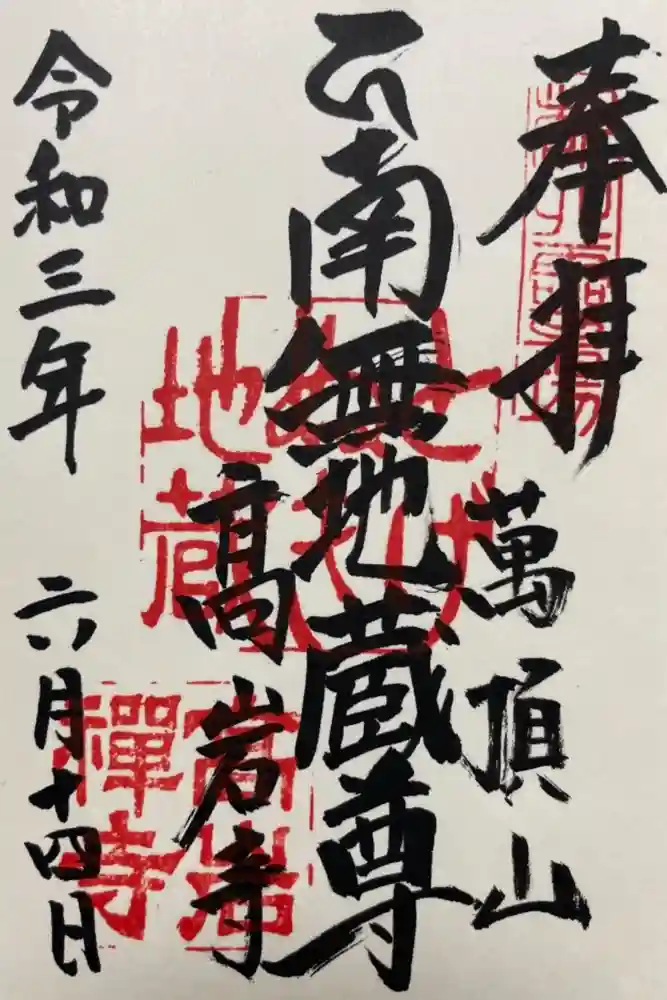 奉拝
萬頂山
南無地蔵尊
高岩寺
令和三年
六月十四日
とげ
ぬき
地蔵
高岩
禅寺